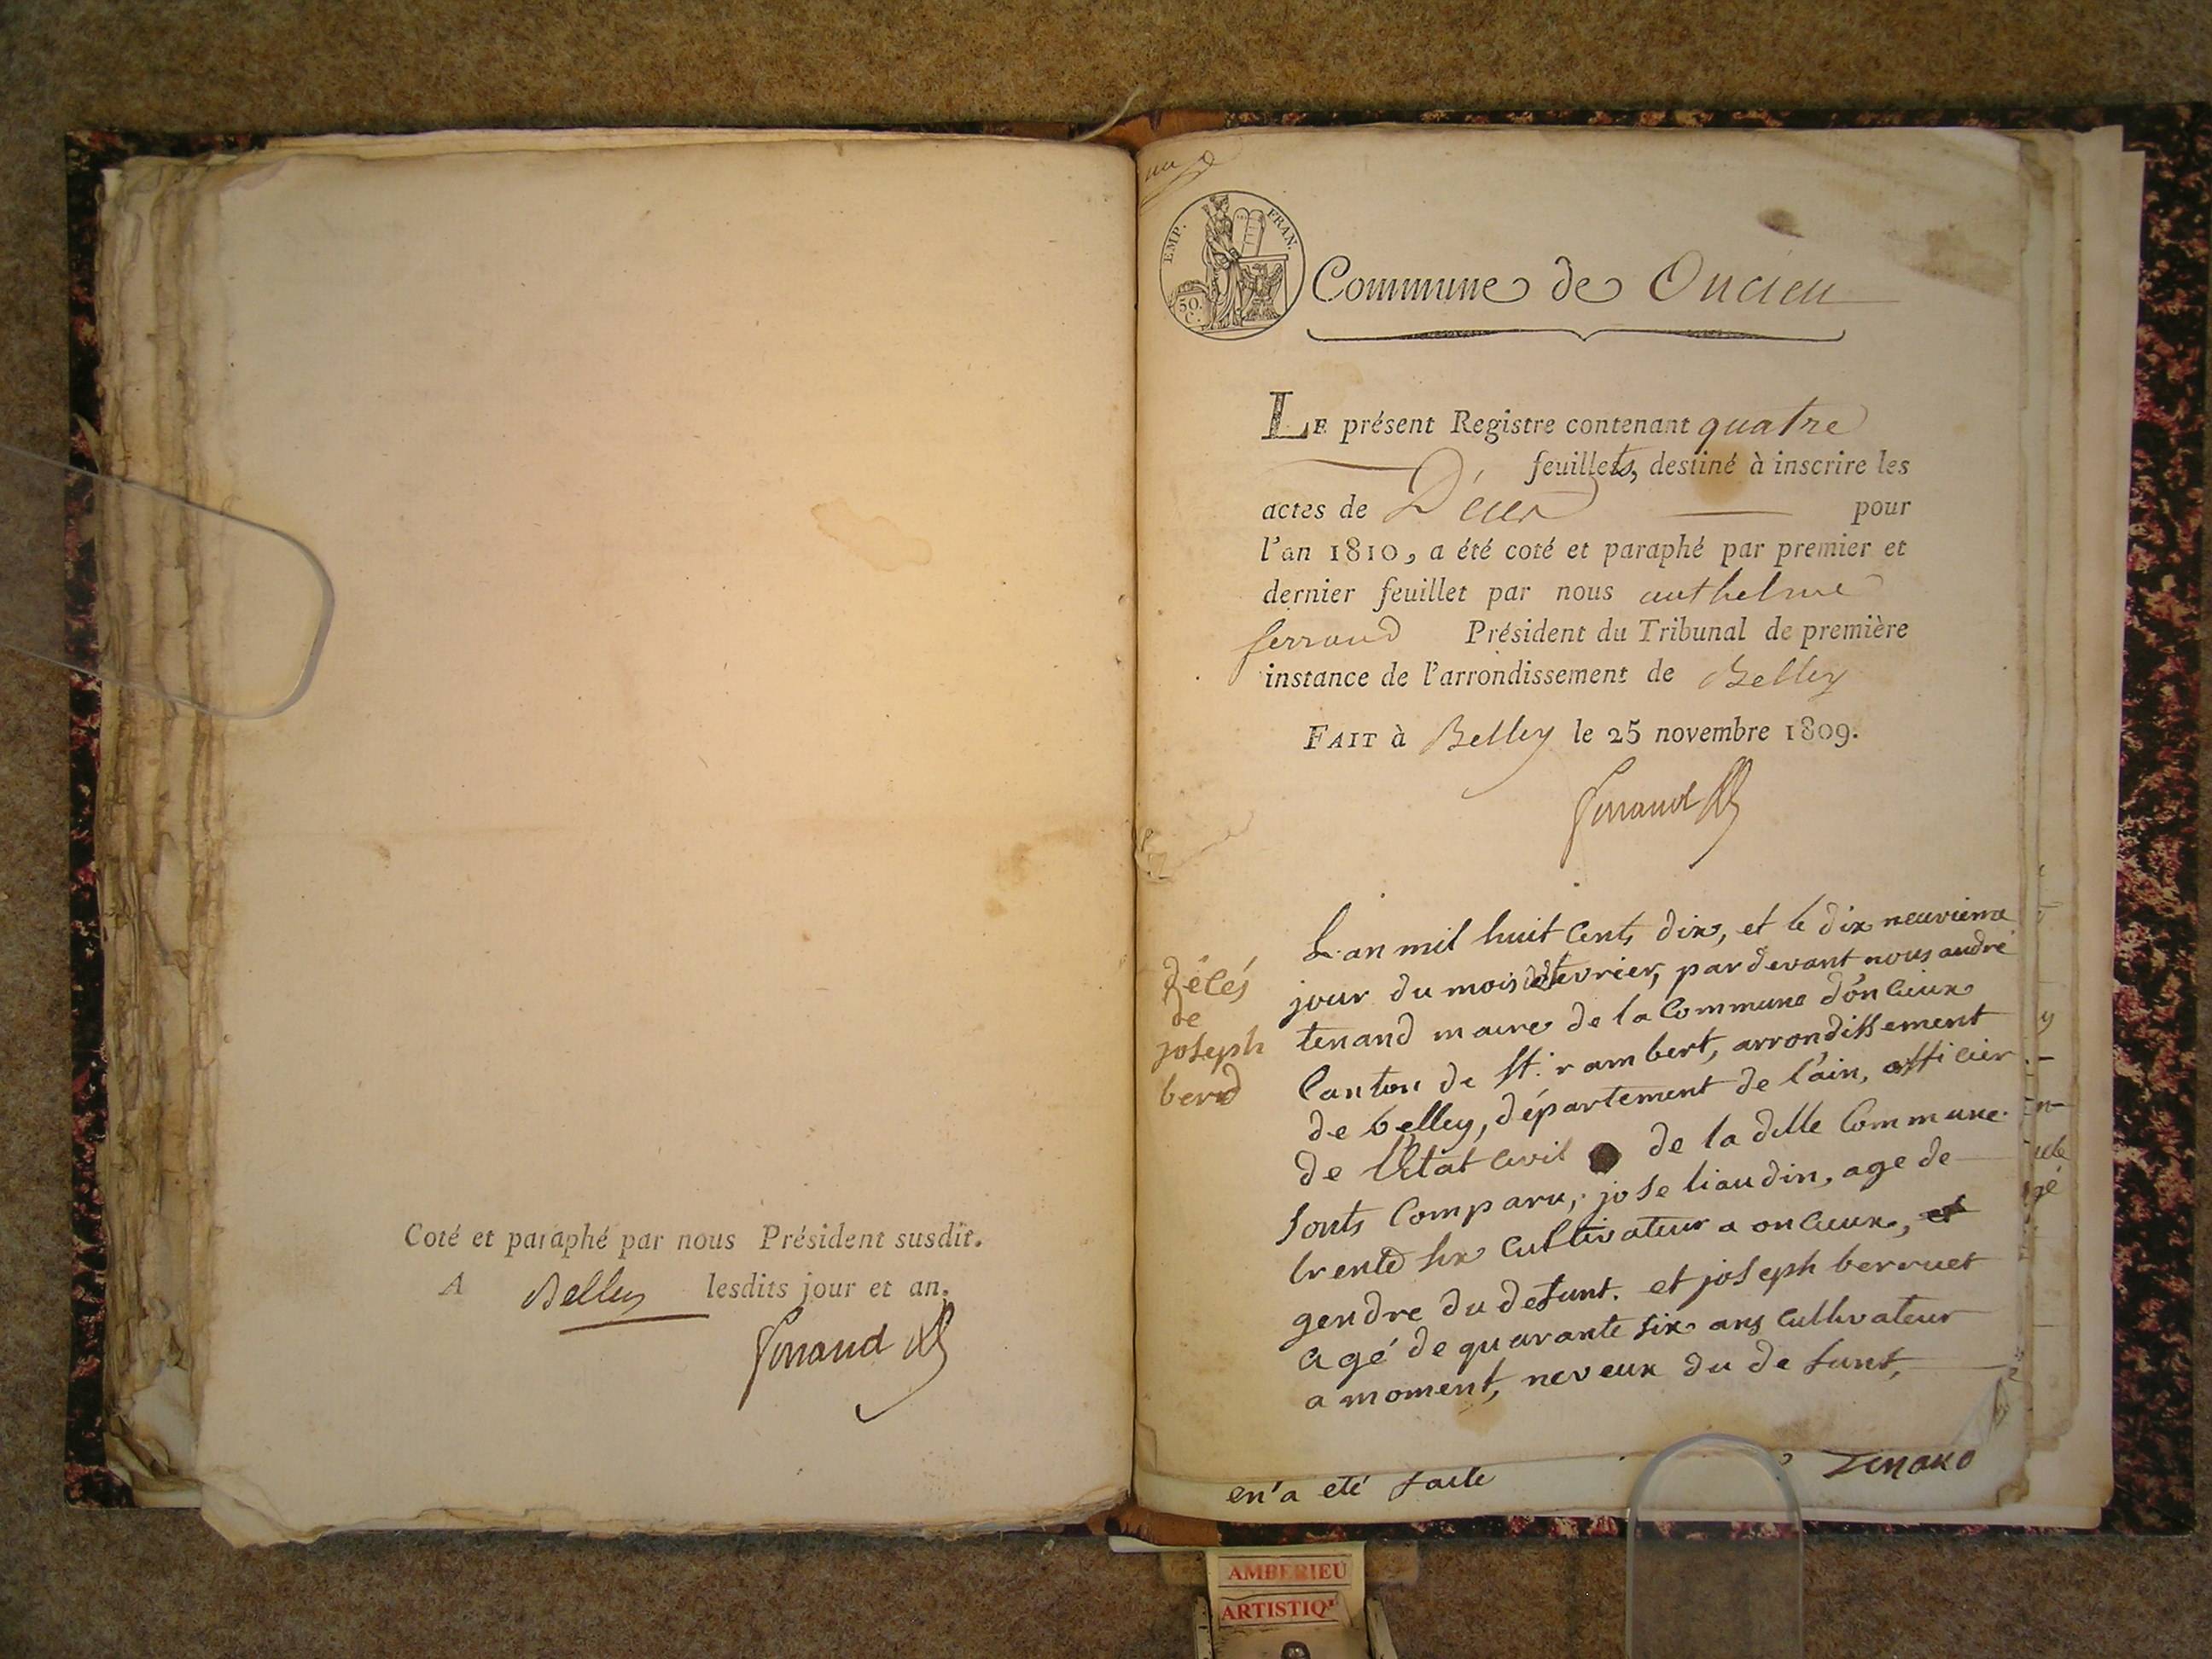 Coté et paraphé par nous Président susdit.
A Belley lesdits jour et an.
ferrand
EMP. FRAN.
50. C.
Commune de Oncieu
LE présent Registre contenant quatre
feuillets, destiné à inscrire les
actes de Décès pour
l'an 1810, a été coté et paraphé par premier et
dernier feuillet par nous anthelme
ferrand Président du Tribunal de première
instance de l'arrondissement de Belley
FAIT à Belley le 25 novembre 1809.
ferrand
décés
de
joseph
L'an mil huit cents dix, et le dix neuvieme
jour du mois de fevrier, pardevant nous andré
tenand maire de la Commune d'oncieux
Canton de St. rambert, arrondissement
de belley, département de l'ain, officier
de l'Etat civil de la ditte Commune.
sonts Comparu, jose liaudin, age de
trente six cultivateur a oncieux, et
gendre du defunt. et joseph berruet
agé de quarante six ans cultivateur
a moment, neveux du defunt,
en'a eté faite
Tenand
AMBERIEU
ARTISTIQ